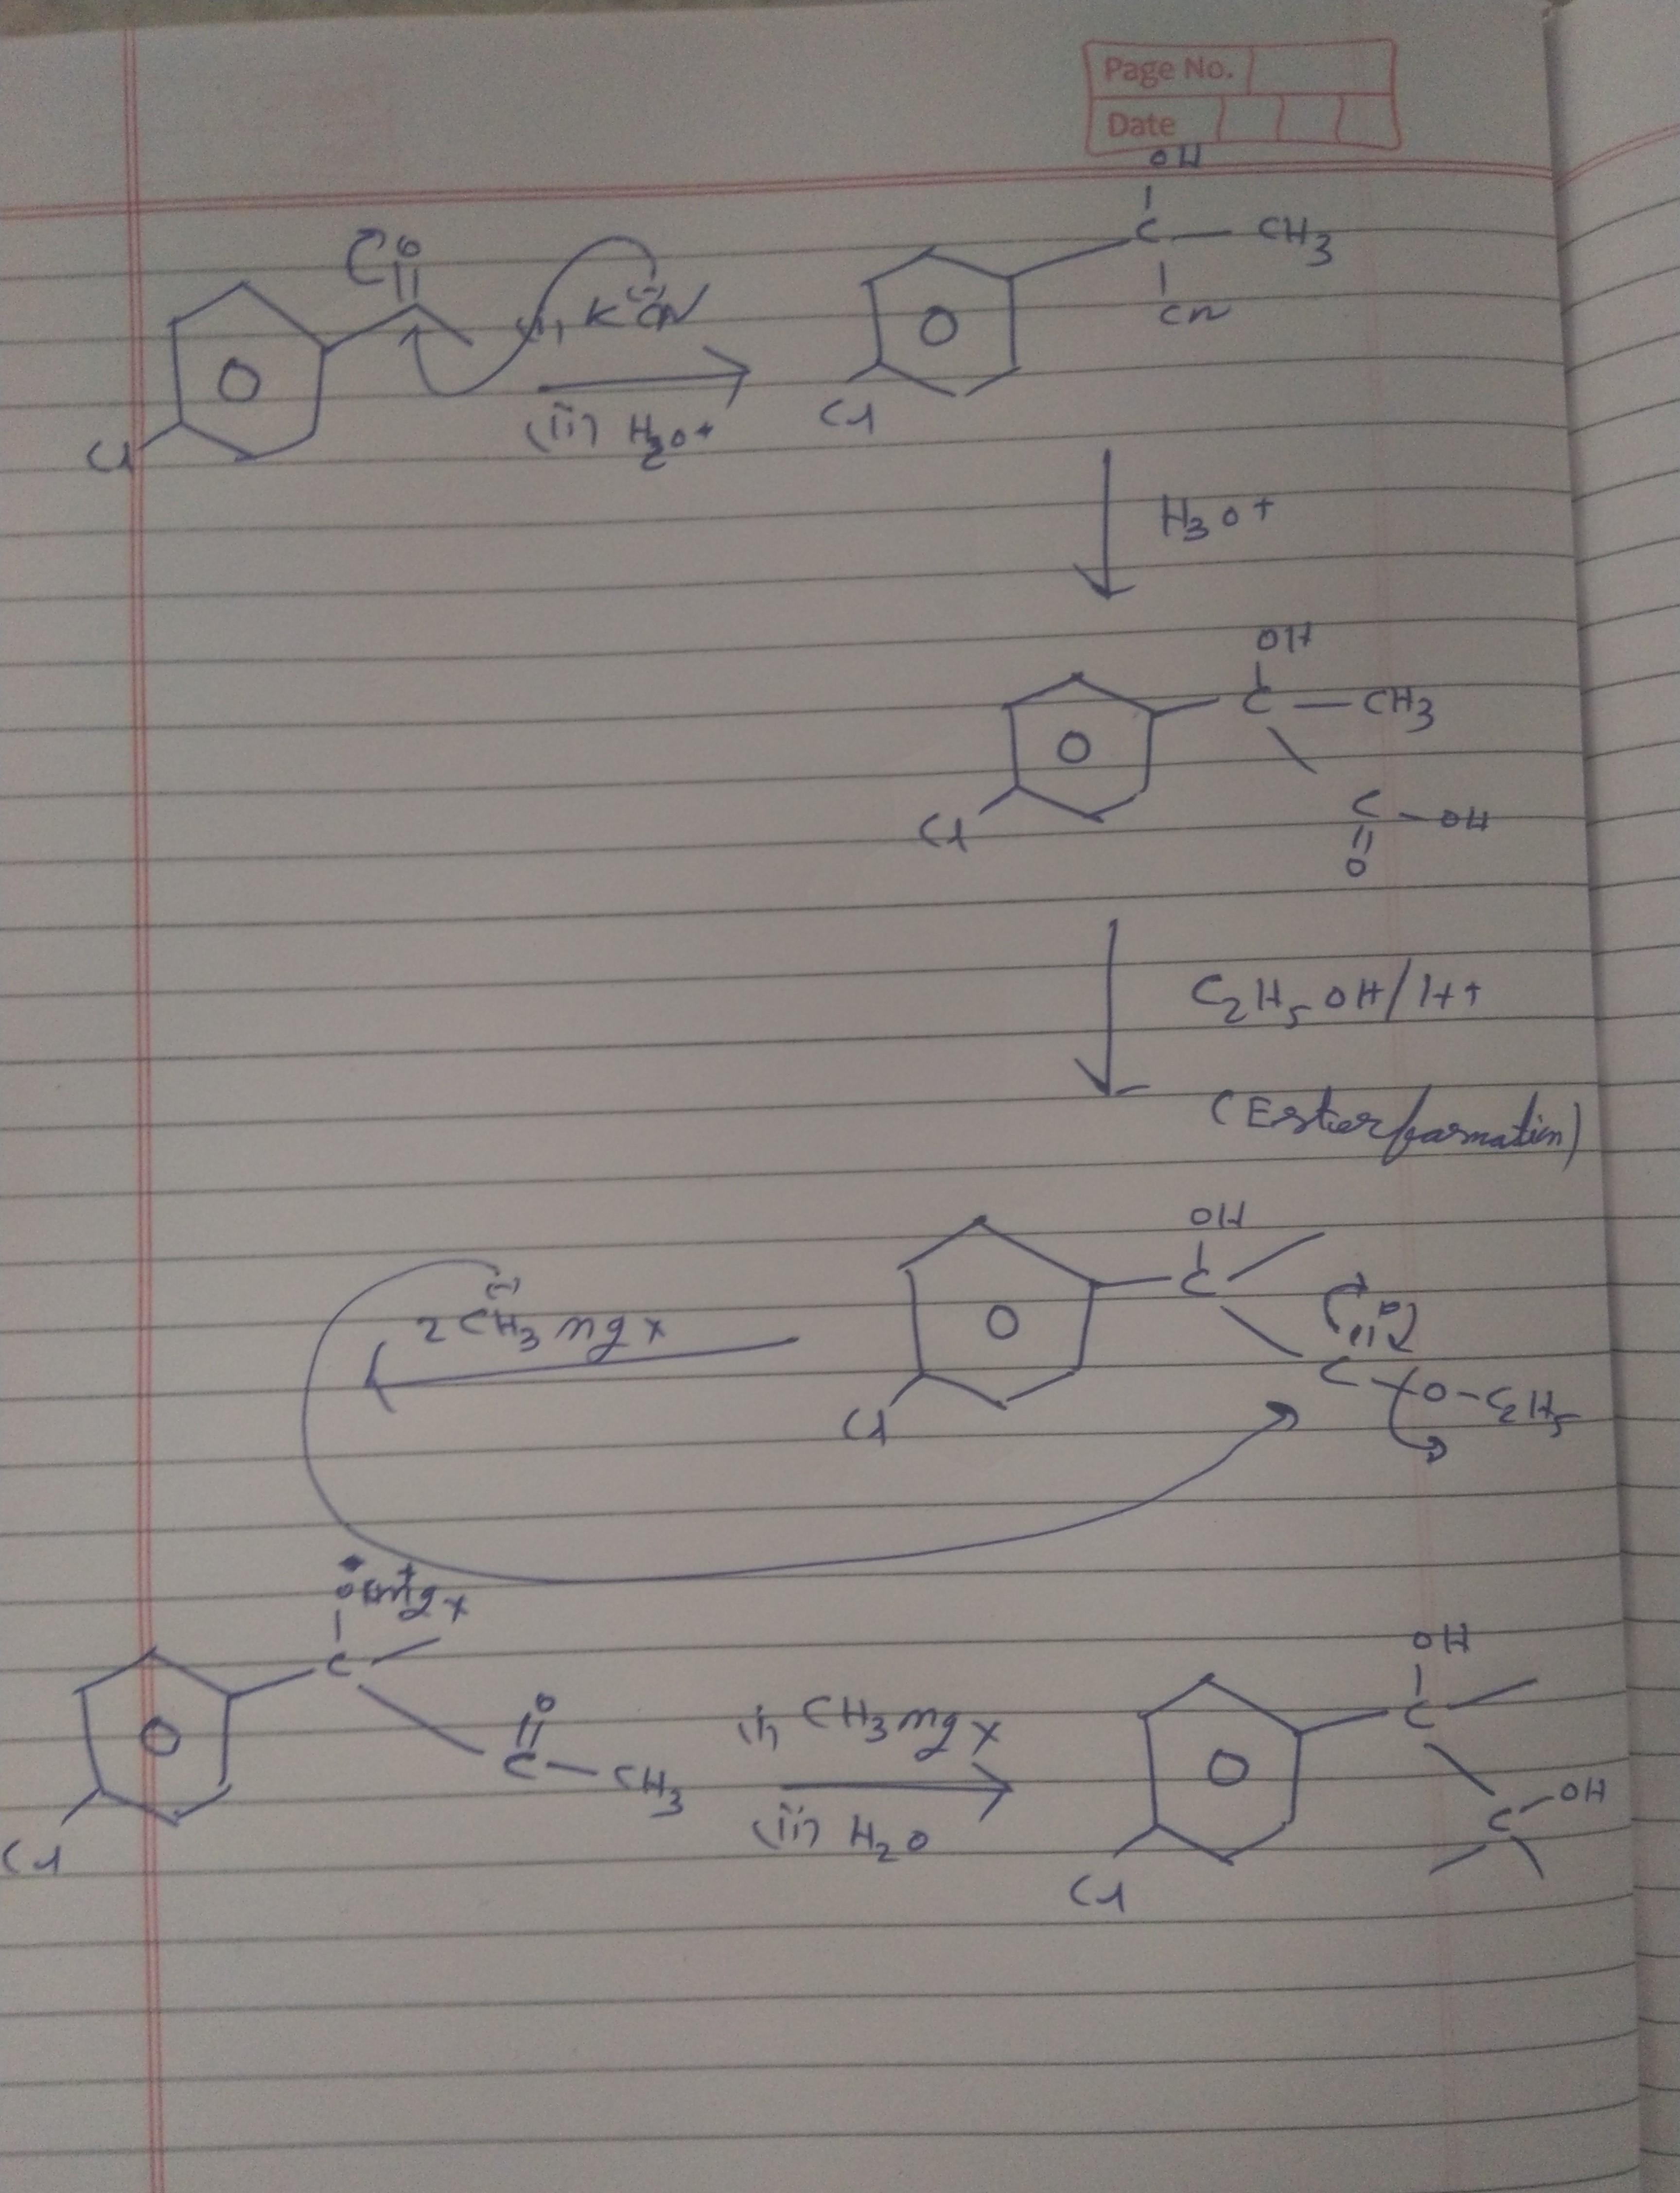 Page No.
Date
OH
C — CH3
CN
O
(i) KCN
(ii) H3O+
Cl
Cl
H3O+
OH
C — CH3
C - OH
O
Cl
C2H5OH/H+
(Ester formation)
OH
C
O
C - O - C2H5
Cl
2CH3MgX
(-)
OMgX
C
O
C - CH3
Cl
(i) CH3MgX
(ii) H2O
OH
C
C - OH
Cl